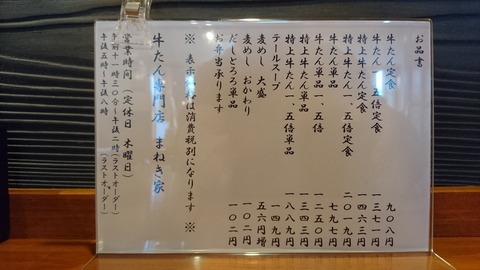 お品書
牛たん定食 九〇八円
牛たん一、五倍定食 一三七一円
特上牛たん定食 一四六三円
特上牛たん一、五倍定食 二〇一九円
牛たん単品 七九七円
牛たん単品一、五倍 一二五〇円
特上牛たん単品 一三四三円
特上牛たん一、五倍単品 一八八九円
テールスープ 一四九円
麦めし 大盛 五六円増
麦めし おかわり 一〇二円
だしとろろ単品 一〇二円
お弁当承ります
※ 表示 は消費税別になります ※
牛たん専門店 まねき家
営業時間（定休日 木曜日）
午前十一時三〇分〜午後二時（ラストオーダー）
午後五時〜午後八時（ラストオーダー）